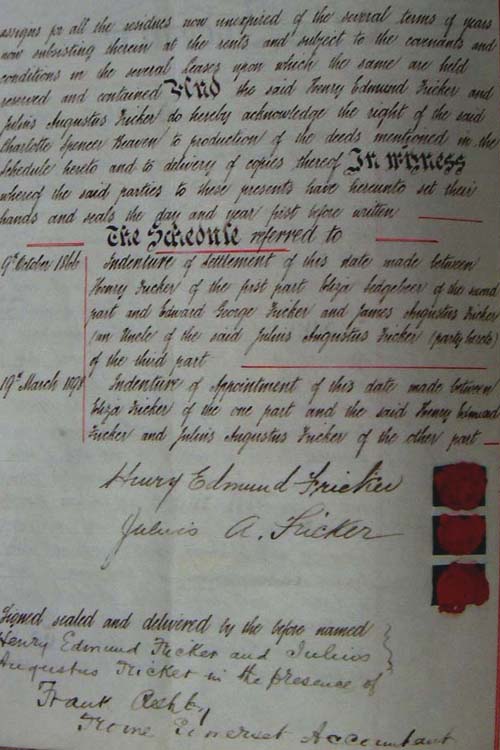 assigns for all the residues now unexpired of the several terms of years
now subsisting therein at the rents and subject to the covenants and
conditions in the several Leases upon which the same are held
reserved and contained And the said Henry Edmund Fricker and
Julius Augustus Fricker do hereby acknowledge the right of the said
Charlotte Spencer Beaven to production of the deeds mentioned in the
Schedule hereto and to delivery of copies thereof In witness
whereof the said parties to these presents have hereunto set their
hands and seals the day and year first before written
The Schedule referred to
9th October 1866 Indenture of Settlement of this date made between
Henry Fricker of the first part Eliza Sedgebeer of the second
part and Edward George Fricker and James Augustus Fricker
(an Uncle of the said Julius Augustus Fricker (party hereto)
of the third part
19th March 1898 Indenture of Appointment of this date made between
Eliza Fricker of the one part and the said Henry Edmund
Fricker and Julius Augustus Fricker of the other part
Henry Edmund Fricker
Julius A. Fricker
Signed sealed and delivered by the before named
Henry Edmund Fricker and Julius
Augustus Fricker in the presence of
Frank Ashby
Frome Somerset Accountant